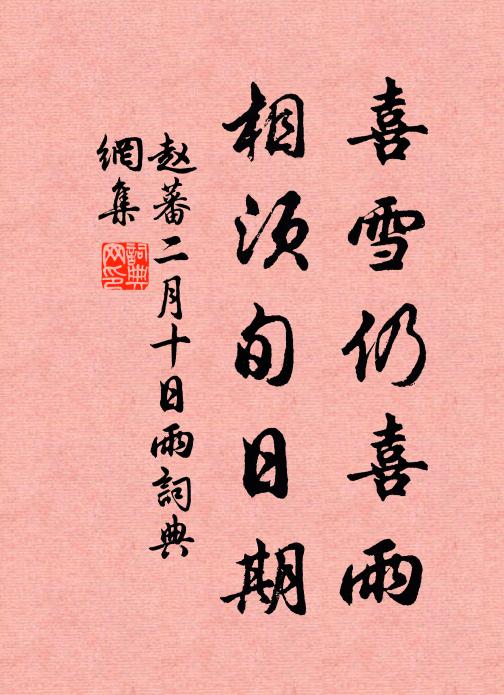 喜雪仍喜雨
相须旬日期
赵蕃二月十日雨詞典
網集
詞典
网印